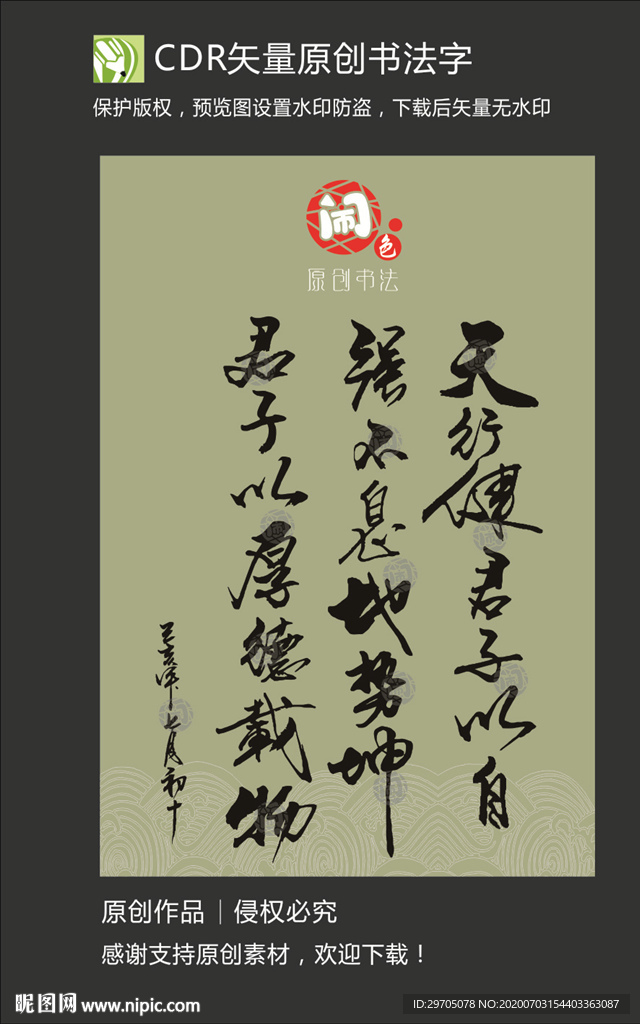 CDR矢量原创书法字
保护版权，预览图设置水印防盗，下载后矢量无水印
闹
色
原创书法
天行健君子以自
强不息地势坤
君子以厚德載物
己亥年七月初十
原创作品｜侵权必究
感谢支持原创素材，欢迎下载！
昵图网 www.nipic.com
ID:29705078 NO:20200703154403363087